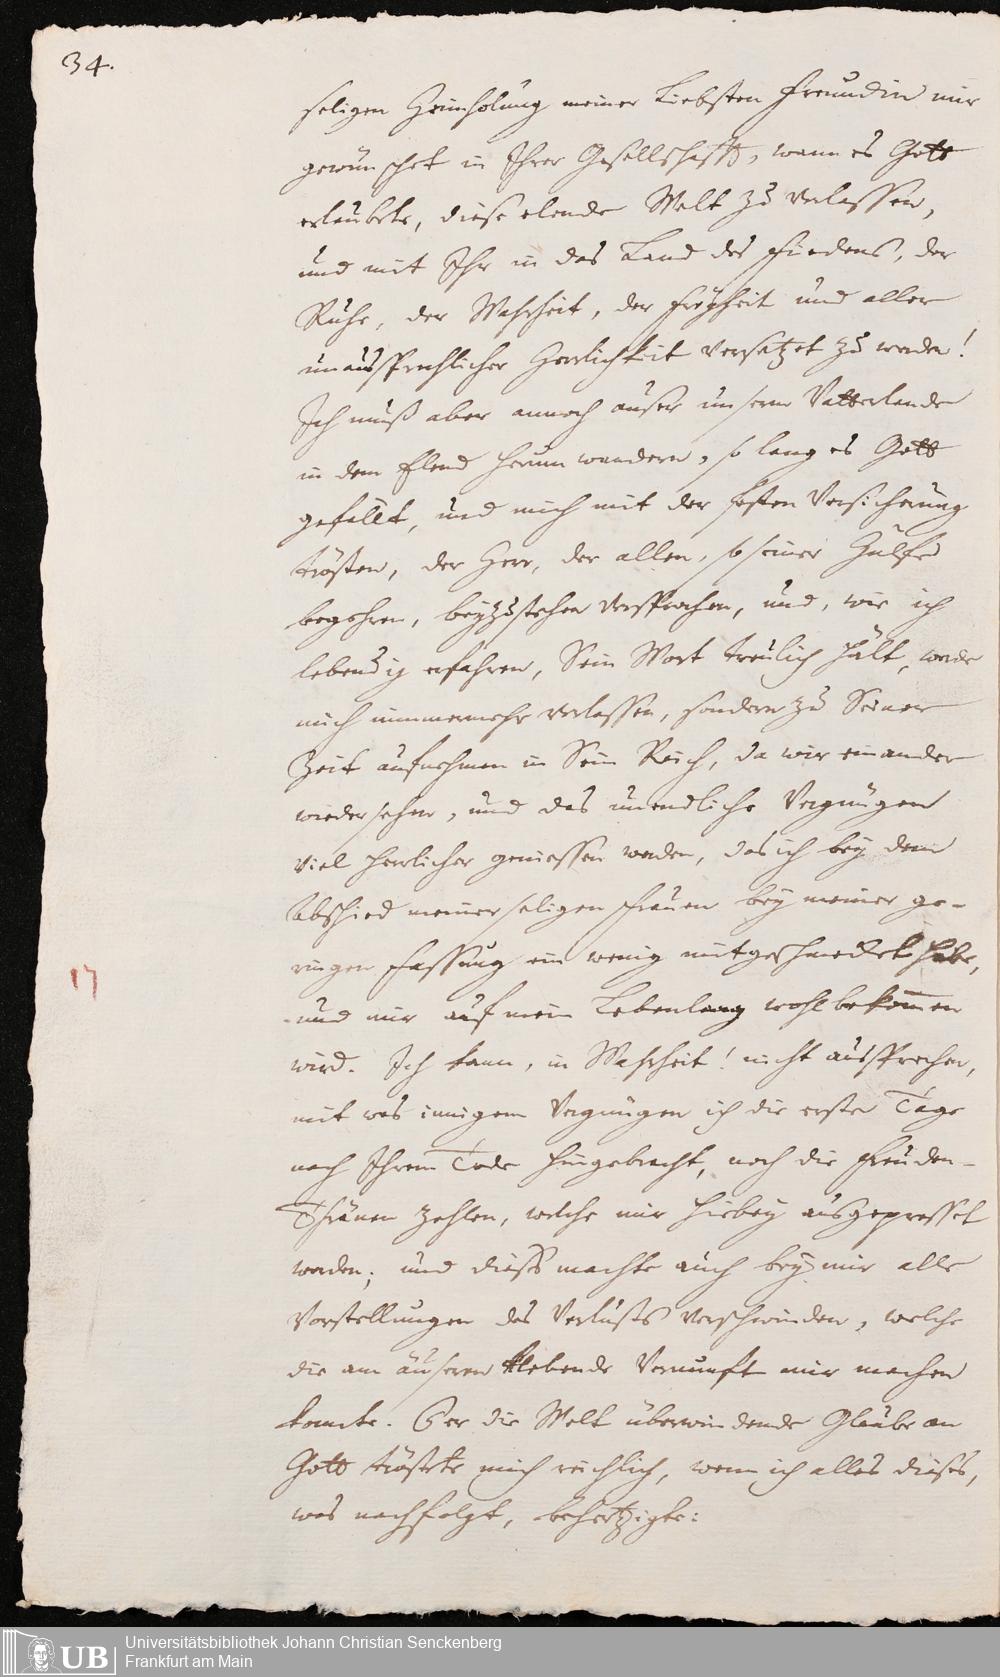 34.
seligen Heimholung meiner Liebsten Freundin mir
gewünschet in Ihrer Gesellschafft, wann es Gott
erlaubete, diese elende Welt zu verlassen,
und mit Ihr in das Land des Friedens, der
Ruhe, der Wahrheit, der Freyheit und aller
unaussprechlicher Herrlichkeit versetzet zu werden!
Ich muß aber annoch ausser unserm Vatterlande
in dem Elend herum wandern, so lang es Gott
gefällt, und mich mit der festen Versicherung
trösten, der Herr, der allen, so seiner Hülfe
begehren, beyzustehen versprochen, und, wie ich
lebendig erfahren, Sein Wort treulich hält, werde
mich nimmermehr verlassen, sondern zu Seiner
Zeit aufnehmen in Sein Reich, da wir einander
wieder sehen, und das unendliche Vergnügen
viel herrlicher geniessen werden, das ich bey dem
Abschied meiner seligen Frauen bey meiner ge-
ringen Fassung ein wenig mitgeschmecket habe,
und mir auf mein Lebenlang wohl bekommen
wird. Ich kann, in Wahrheit! nicht aussprechen,
mit was innigem Vergnügen ich die erste Tage
nach Ihrem Tode hingebracht, noch die Freuden-
Thränen zehlen, welche mir hiebey ausgepresset
worden; und diess machte auch bey mir alle
Vorstellungen des Verlusts verschwinden, welche
die am äusseren klebende Vernunfft mir machen
konnte. Der die Welt überwindende Glaube an
Gott tröstete mich reichlich, wenn ich alles dieses,
was nachfolgt, behertzigte:
17
UB
Universitätsbibliothek Johann Christian Senckenberg
Frankfurt am Main